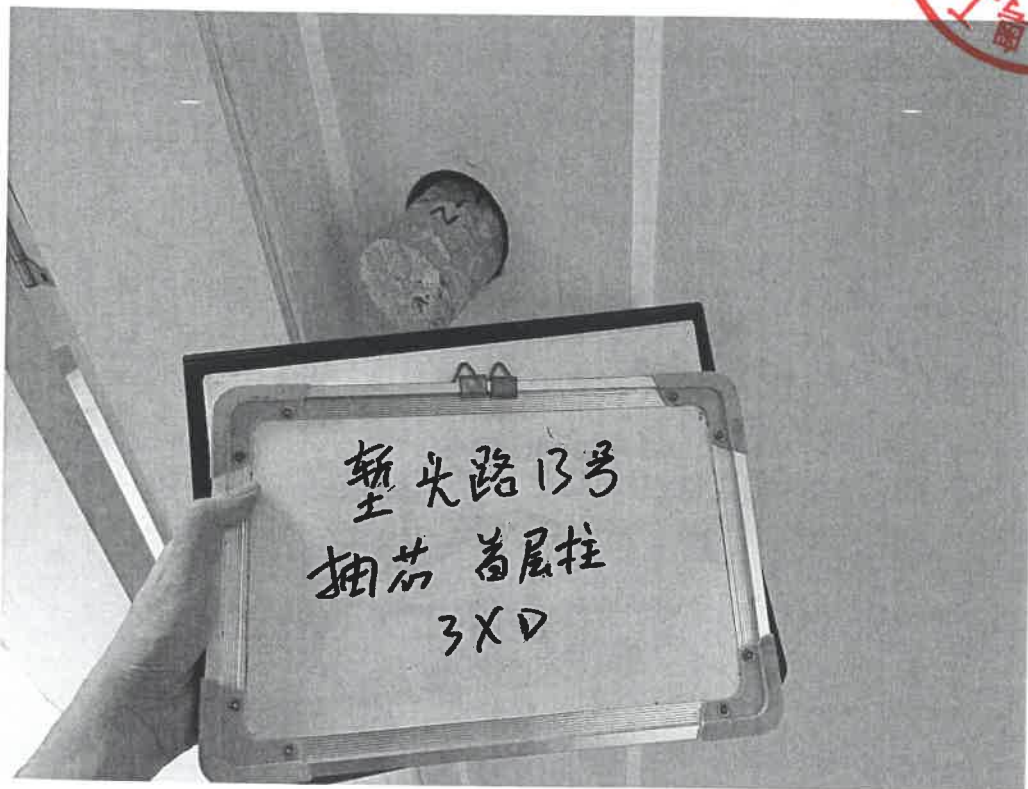 堑头路13号
抽芯 首层柱
3XD